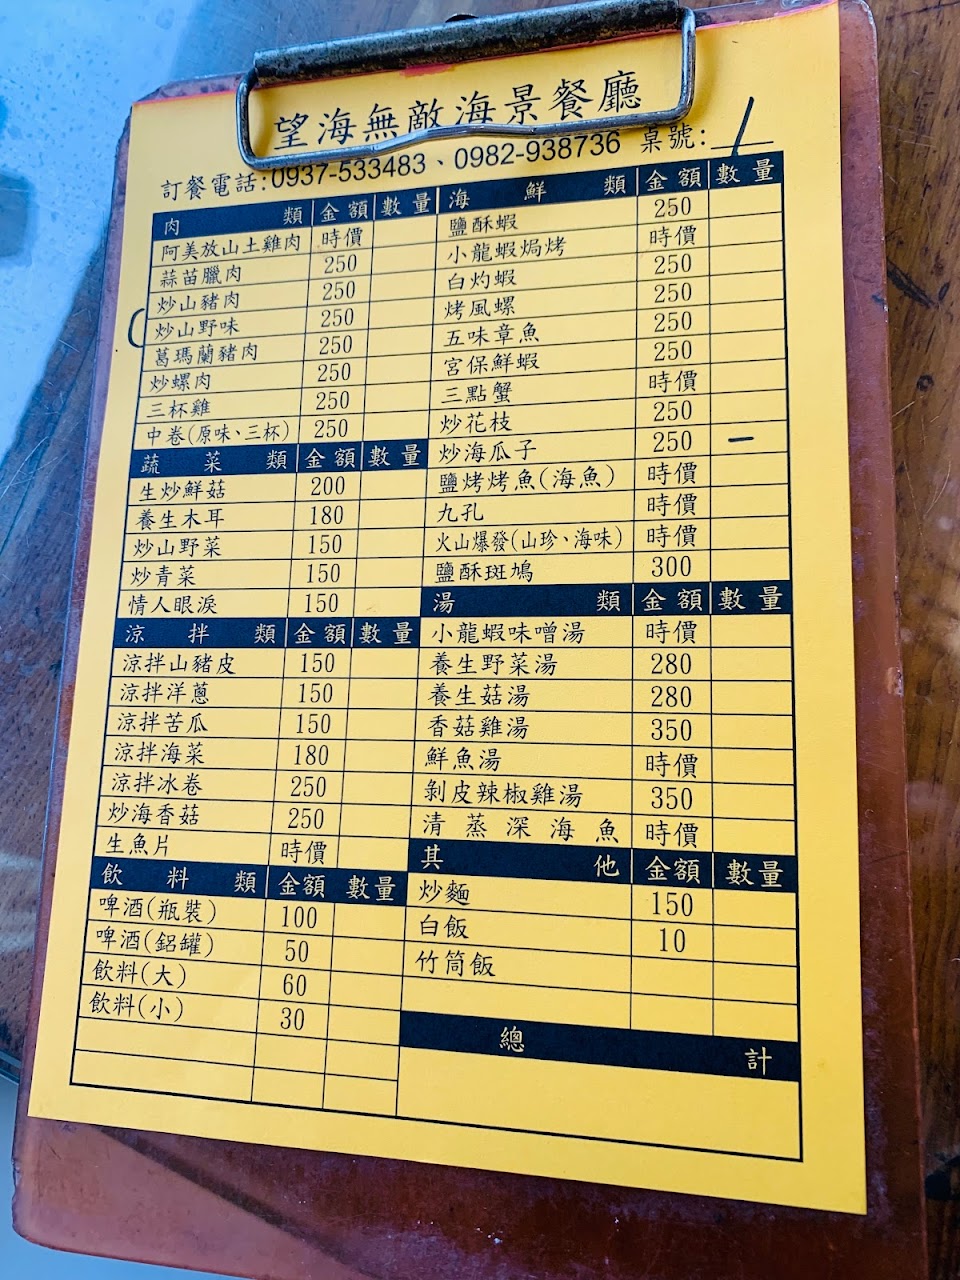 望海無敵海景餐廳
訂餐電話:0937-533483、0982-938736 桌號: 1
肉類 金額 數量
阿美放山土雞肉 時價
蒜苗臘肉 250
炒山豬肉 250
炒山野味 250
葛瑪蘭豬肉 250
炒螺肉 250
三杯雞 250
中卷(原味、三杯) 250
蔬菜類 金額 數量
生炒鮮菇 200
養生木耳 180
炒山野菜 150
炒青菜 150
情人眼淚 150
涼拌類 金額 數量
涼拌山豬皮 150
涼拌洋蔥 150
涼拌苦瓜 150
涼拌海菜 180
涼拌冰卷 250
炒海香菇 250
生魚片 時價
飲料類 金額 數量
啤酒(瓶裝) 100
啤酒(鋁罐) 50
飲料(大) 60
飲料(小) 30
海鮮類 金額 數量
鹽酥蝦 250
小龍蝦焗烤 時價
白灼蝦 250
烤風螺 250
五味章魚 250
宮保鮮蝦 250
三點蟹 時價
炒花枝 250
炒海瓜子 250 一
鹽烤烤魚(海魚) 時價
九孔 時價
火山爆發(山珍、海味) 時價
鹽酥斑鳩 300
湯類 金額 數量
小龍蝦味噌湯 時價
養生野菜湯 280
養生菇湯 280
香菇雞湯 350
鮮魚湯 時價
剝皮辣椒雞湯 350
清蒸深海魚 時價
其他 金額 數量
炒麵 150
白飯 10
竹筒飯
總計